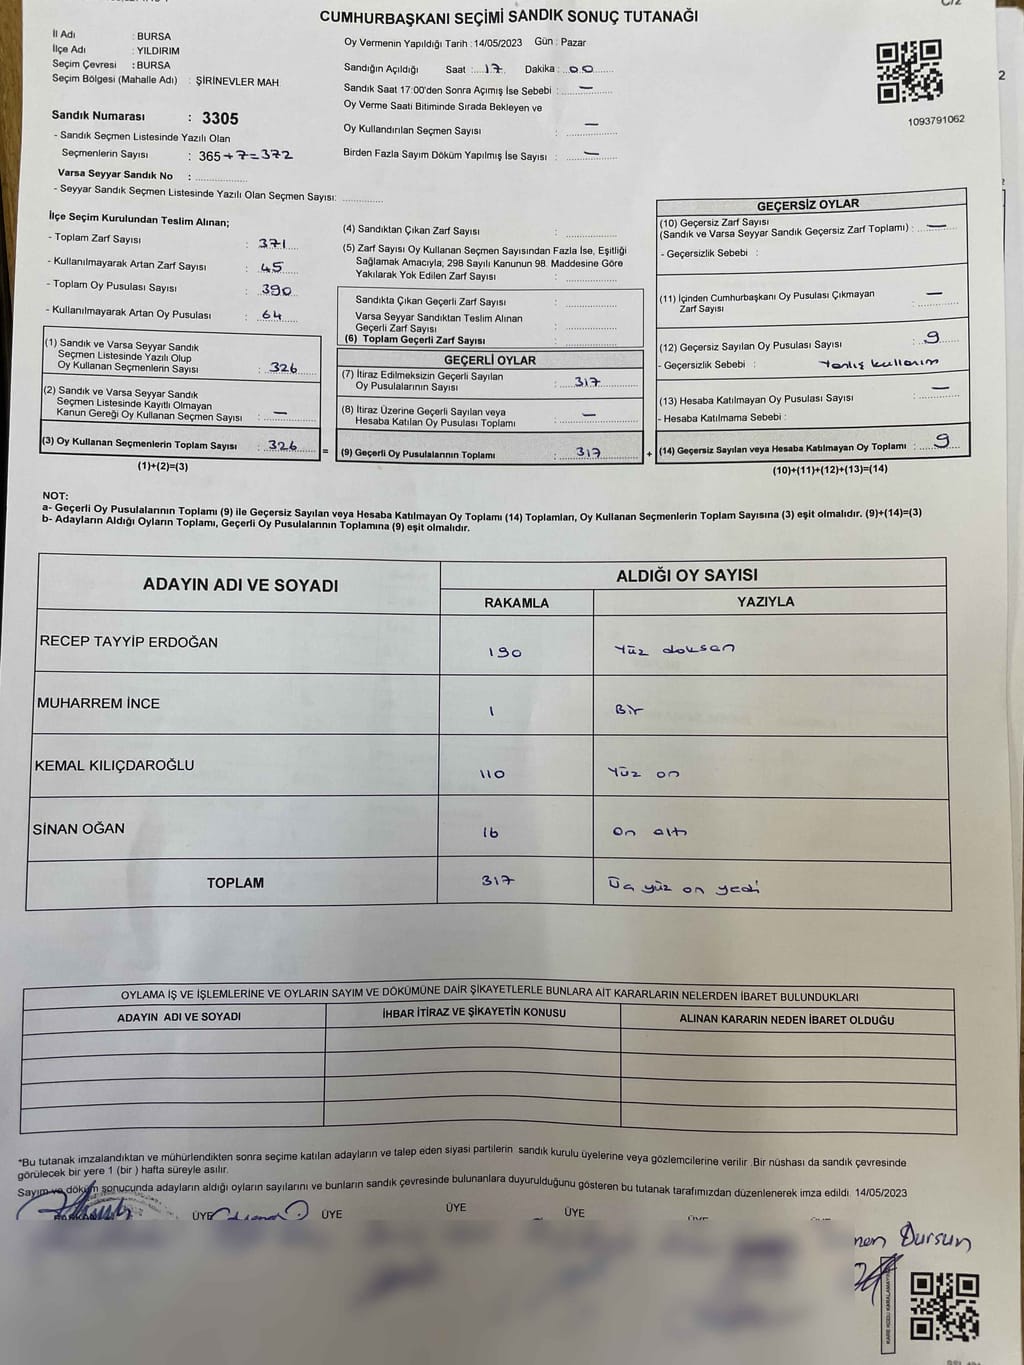 CUMHURBAŞKANI SEÇİMİ SANDIK SONUÇ TUTANAĞI
İl Adı : BURSA
İlçe Adı : YILDIRIM
Seçim Çevresi : BURSA
Seçim Bölgesi (Mahalle Adı) : ŞİRİNEVLER MAH.
Sandık Numarası : 3305
- Sandık Seçmen Listesinde Yazılı Olan
Seçmenlerin Sayısı : 365+7=372
Varsa Seyyar Sandık No :
- Seyyar Sandık Seçmen Listesinde Yazılı Olan Seçmen Sayısı:
Oy Vermenin Yapıldığı Tarih : 14/05/2023 Gün : Pazar
Sandığın Açıldığı Saat : 17 Dakika : 00
Sandık Saat 17:00'den Sonra Açımış İse Sebebi : —
Oy Verme Saati Bitiminde Sırada Bekleyen ve
Oy Kullandırılan Seçmen Sayısı : —
Birden Fazla Sayım Döküm Yapılmış İse Sayısı : —
1093791062
İlçe Seçim Kurulundan Teslim Alınan;
- Toplam Zarf Sayısı : 371
- Kullanılmayarak Artan Zarf Sayısı : 45
- Toplam Oy Pusulası Sayısı : 390
- Kullanılmayarak Artan Oy Pusulası : 64
(1) Sandık ve Varsa Seyyar Sandık
Seçmen Listesinde Yazılı Olup
Oy Kullanan Seçmenlerin Sayısı : 326
(2) Sandık ve Varsa Seyyar Sandık
Seçmen Listesinde Kayıtlı Olmayan
Kanun Gereği Oy Kullanan Seçmen Sayısı : —
(3) Oy Kullanan Seçmenlerin Toplam Sayısı : 326 =
(1)+(2)=(3)
(4) Sandıktan Çıkan Zarf Sayısı :
(5) Zarf Sayısı Oy Kullanan Seçmen Sayısından Fazla İse, Eşitliği
Sağlamak Amacıyla, 298 Sayılı Kanunun 98. Maddesine Göre
Yakılarak Yok Edilen Zarf Sayısı :
Sandıkta Çıkan Geçerli Zarf Sayısı :
Varsa Seyyar Sandıktan Teslim Alınan
Geçerli Zarf Sayısı :
(6) Toplam Geçerli Zarf Sayısı :
GEÇERLİ OYLAR
(7) İtiraz Edilmeksizin Geçerli Sayılan
Oy Pusulalarının Sayısı : 317
(8) İtiraz Üzerine Geçerli Sayılan veya
Hesaba Katılan Oy Pusulası Toplamı : —
(9) Geçerli Oy Pusulalarının Toplamı : 317 +
GEÇERSİZ OYLAR
(10) Geçersiz Zarf Sayısı
(Sandık ve Varsa Seyyar Sandık Geçersiz Zarf Toplamı) : —
- Geçersizlik Sebebi :
(11) İçinden Cumhurbaşkanı Oy Pusulası Çıkmayan
Zarf Sayısı : —
(12) Geçersiz Sayılan Oy Pusulası Sayısı : 9
- Geçersizlik Sebebi : Yanlış kullanım
(13) Hesaba Katılmayan Oy Pusulası Sayısı : —
- Hesaba Katılmama Sebebi :
(14) Geçersiz Sayılan veya Hesaba Katılmayan Oy Toplamı : 9
(10)+(11)+(12)+(13)=(14)
NOT:
a- Geçerli Oy Pusulalarının Toplamı (9) ile Geçersiz Sayılan veya Hesaba Katılmayan Oy Toplamı (14) Toplamları, Oy Kullanan Seçmenlerin Toplam Sayısına (3) eşit olmalıdır. (9)+(14)=(3)
b- Adayların Aldığı Oyların Toplamı, Geçerli Oy Pusulalarının Toplamına (9) eşit olmalıdır.
ADAYIN ADI VE SOYADI ALDIĞI OY SAYISI
RAKAMLA YAZIYLA
RECEP TAYYİP ERDOĞAN 190 Yüz doksan
MUHARREM İNCE 1 Bir
KEMAL KILIÇDAROĞLU 110 Yüz on
SİNAN OĞAN 16 On altı
TOPLAM 317 Üç yüz on yedi
OYLAMA İŞ VE İŞLEMLERİNE VE OYLARIN SAYIM VE DÖKÜMÜNE DAİR ŞİKAYETLERLE BUNLARA AİT KARARLARIN NELERDEN İBARET BULUNDUKLARI
ADAYIN ADI VE SOYADI İHBAR İTİRAZ VE ŞİKAYETİN KONUSU ALINAN KARARIN NEDEN İBARET OLDUĞU
*Bu tutanak imzalandıktan ve mühürlendikten sonra seçime katılan adayların ve talep eden siyasi partilerin sandık kurulu üyelerine veya gözlemcilerine verilir .Bir nüshası da sandık çevresinde
görülecek bir yere 1 (bir ) hafta süreyle asılır.
Sayım ve döküm sonucunda adayların aldığı oyların sayılarını ve bunların sandık çevresinde bulunanlara duyurulduğunu gösteren bu tutanak tarafımızdan düzenlenerek imza edildi. 14/05/2023
ÜYE ÜYE ÜYE ÜYE
Dursun